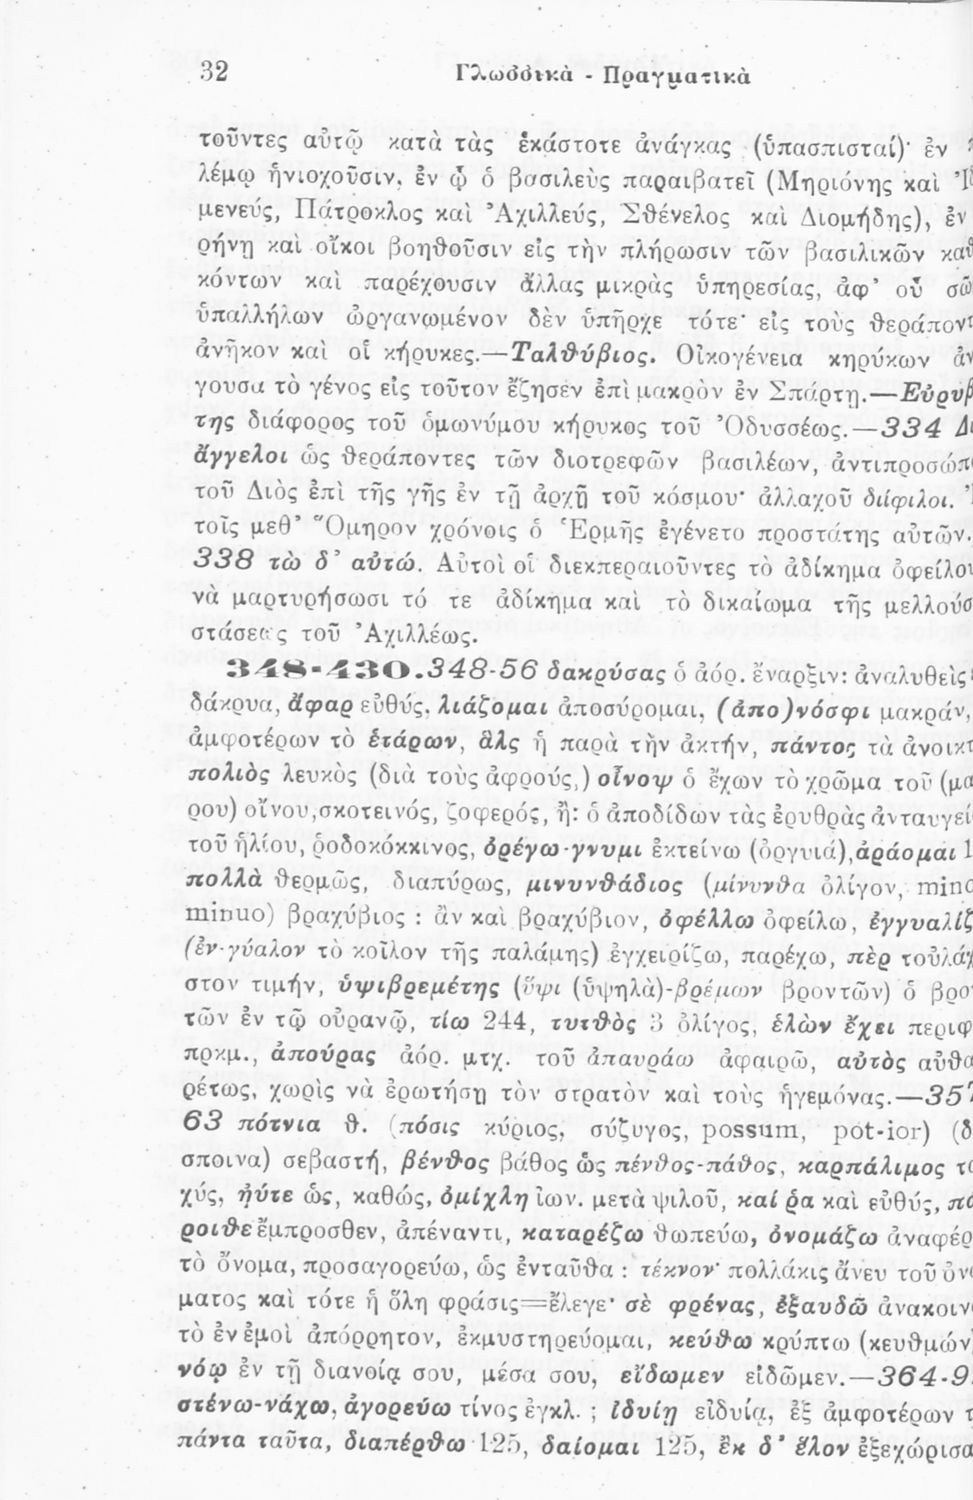 32 Γλωσσικὰ - Πραγματικὰ
τοῦντες αὐτῷ κατὰ τὰς ἑκάστοτε ἀνάγκας (ὑπασπισταί)· ἐν
λέμῳ ἡνιοχοῦσιν, ἐν ᾧ ὁ βασιλεὺς παραιβατεῖ (Μηριόνης καὶ Ἰδ
μενεύς, Πάτροκλος καὶ Ἀχιλλεύς, Σθένελος καὶ Διομήδης), ἐν
ρήνῃ καὶ οἴκοι βοηθοῦσιν εἰς τὴν πλήρωσιν τῶν βασιλικῶν καθ
κόντων καὶ παρέχουσιν ἄλλας μικρὰς ὑπηρεσίας, ἀφ' οὗ σῶ
ὑπαλλήλων ὠργανωμένον δὲν ὑπῆρχε τότε· εἰς τοὺς θεράποντ
ἀνῆκον καὶ οἱ κήρυκες.—Ταλθύβιος. Οἰκογένεια κηρύκων ἀν
γουσα τὸ γένος εἰς τοῦτον ἔζησεν ἐπὶ μακρὸν ἐν Σπάρτῃ.—Εὐρυβ
της διάφορος τοῦ ὁμωνύμου κήρυκος τοῦ Ὀδυσσέως.—334 Δι
ἄγγελοι ὡς θεράποντες τῶν διοτρεφῶν βασιλέων, ἀντιπροσώπ
τοῦ Διὸς ἐπὶ τῆς γῆς ἐν τῇ ἀρχῇ τοῦ κόσμου· ἀλλαχοῦ διίφιλοι.
τοῖς μεθ' Ὅμηρον χρόνοις ὁ Ἑρμῆς ἐγένετο προστάτης αὐτῶν.
338 τὼ δ' αὐτώ. Αὐτοὶ οἱ διεκπεραιοῦντες τὸ ἀδίκημα ὀφείλου
νὰ μαρτυρήσωσι τό τε ἀδίκημα καὶ τὸ δικαίωμα τῆς μελλούσ
στάσεως τοῦ Ἀχιλλέως.
348-430. 348-56 δακρύσας ὁ ἀόρ. ἔναρξιν: ἀναλυθεὶς
δάκρυα, ἄφαρ εὐθύς, λιάζομαι ἀποσύρομαι, (ἀπο)νόσφι μακράν,
ἀμφοτέρων τὸ ἑτάρων, ἃλς ἡ παρὰ τὴν ἀκτήν, πάντος τὰ ἀνοικτ
πολιὸς λευκὸς (διὰ τοὺς ἀφρούς,) οἶνοψ ὁ ἔχων τὸ χρῶμα τοῦ (μα
ρου) οἴνου, σκοτεινός, ζοφερός, ἢ: ὁ ἀποδίδων τὰς ἐρυθρὰς ἀνταυγεί
τοῦ ἡλίου, ῥοδοκόκκινος, ὀρέγω-γνυμι ἐκτείνω (ὀργυιά), ἀράομαι 1
πολλὰ θερμῶς, διαπύρως, μινυνθάδιος (μίνυνθα ὀλίγον, mino
minuo) βραχύβιος : ἂν καὶ βραχύβιον, ὀφέλλω ὀφείλω, ἐγγυαλίζ
(ἐν-γύαλον τὸ κοῖλον τῆς παλάμης) ἐγχειρίζω, παρέχω, πὲρ τοὐλάχ
στον τιμήν, ὑψιβρεμέτης (ὕψι (ὑψηλὰ)-βρέμων βροντῶν) ὁ βρο
τῶν ἐν τῷ οὐρανῷ, τίω 244, τυτθὸς 3 ὀλίγος, ἑλὼν ἔχει περιφ
πρκμ., ἀπούρας ἀόρ. μτχ. τοῦ ἀπαυράω ἀφαιρῶ, αὐτὸς αὐθα
ρέτως, χωρὶς νὰ ἐρωτήσῃ τὸν στρατὸν καὶ τοὺς ἡγεμόνας.—357
63 πότνια θ. (πόσις κύριος, σύζυγος, possum, pot-ior) (δ
σποινα) σεβαστή, βένθος βάθος ὡς πένθος-πάθος, καρπάλιμος τα
χύς, ἠύτε ὡς, καθώς, ὀμίχλη ἰων. μετὰ ψιλοῦ, καί ῥα καὶ εὐθύς, πά
ροιθε ἔμπροσθεν, ἀπέναντι, καταρέζω θωπεύω, ὀνομάζω ἀναφέρ
τὸ ὄνομα, προσαγορεύω, ὡς ἐνταῦθα : τέκνον· πολλάκις ἄνευ τοῦ ὀν
ματος καὶ τότε ἡ ὅλη φράσις=ἔλεγε· σὲ φρένας, ἐξαυδῶ ἀνακοιν
τὸ ἐν ἐμοὶ ἀπόρρητον, ἐκμυστηρεύομαι, κεύθω κρύπτω (κευθμών)
νόῳ ἐν τῇ διανοίᾳ σου, μέσα σου, εἴδωμεν εἰδῶμεν.—364-9
στένω-νάχω, ἀγορεύω τίνος ἐγκλ. ; ἰδυίῃ εἰδυίᾳ, ἐξ ἀμφοτέρων τ
πάντα ταῦτα, διαπέρθω 125, δαίομαι 125, ἐκ δ' ἕλον ἐξεχώρισα